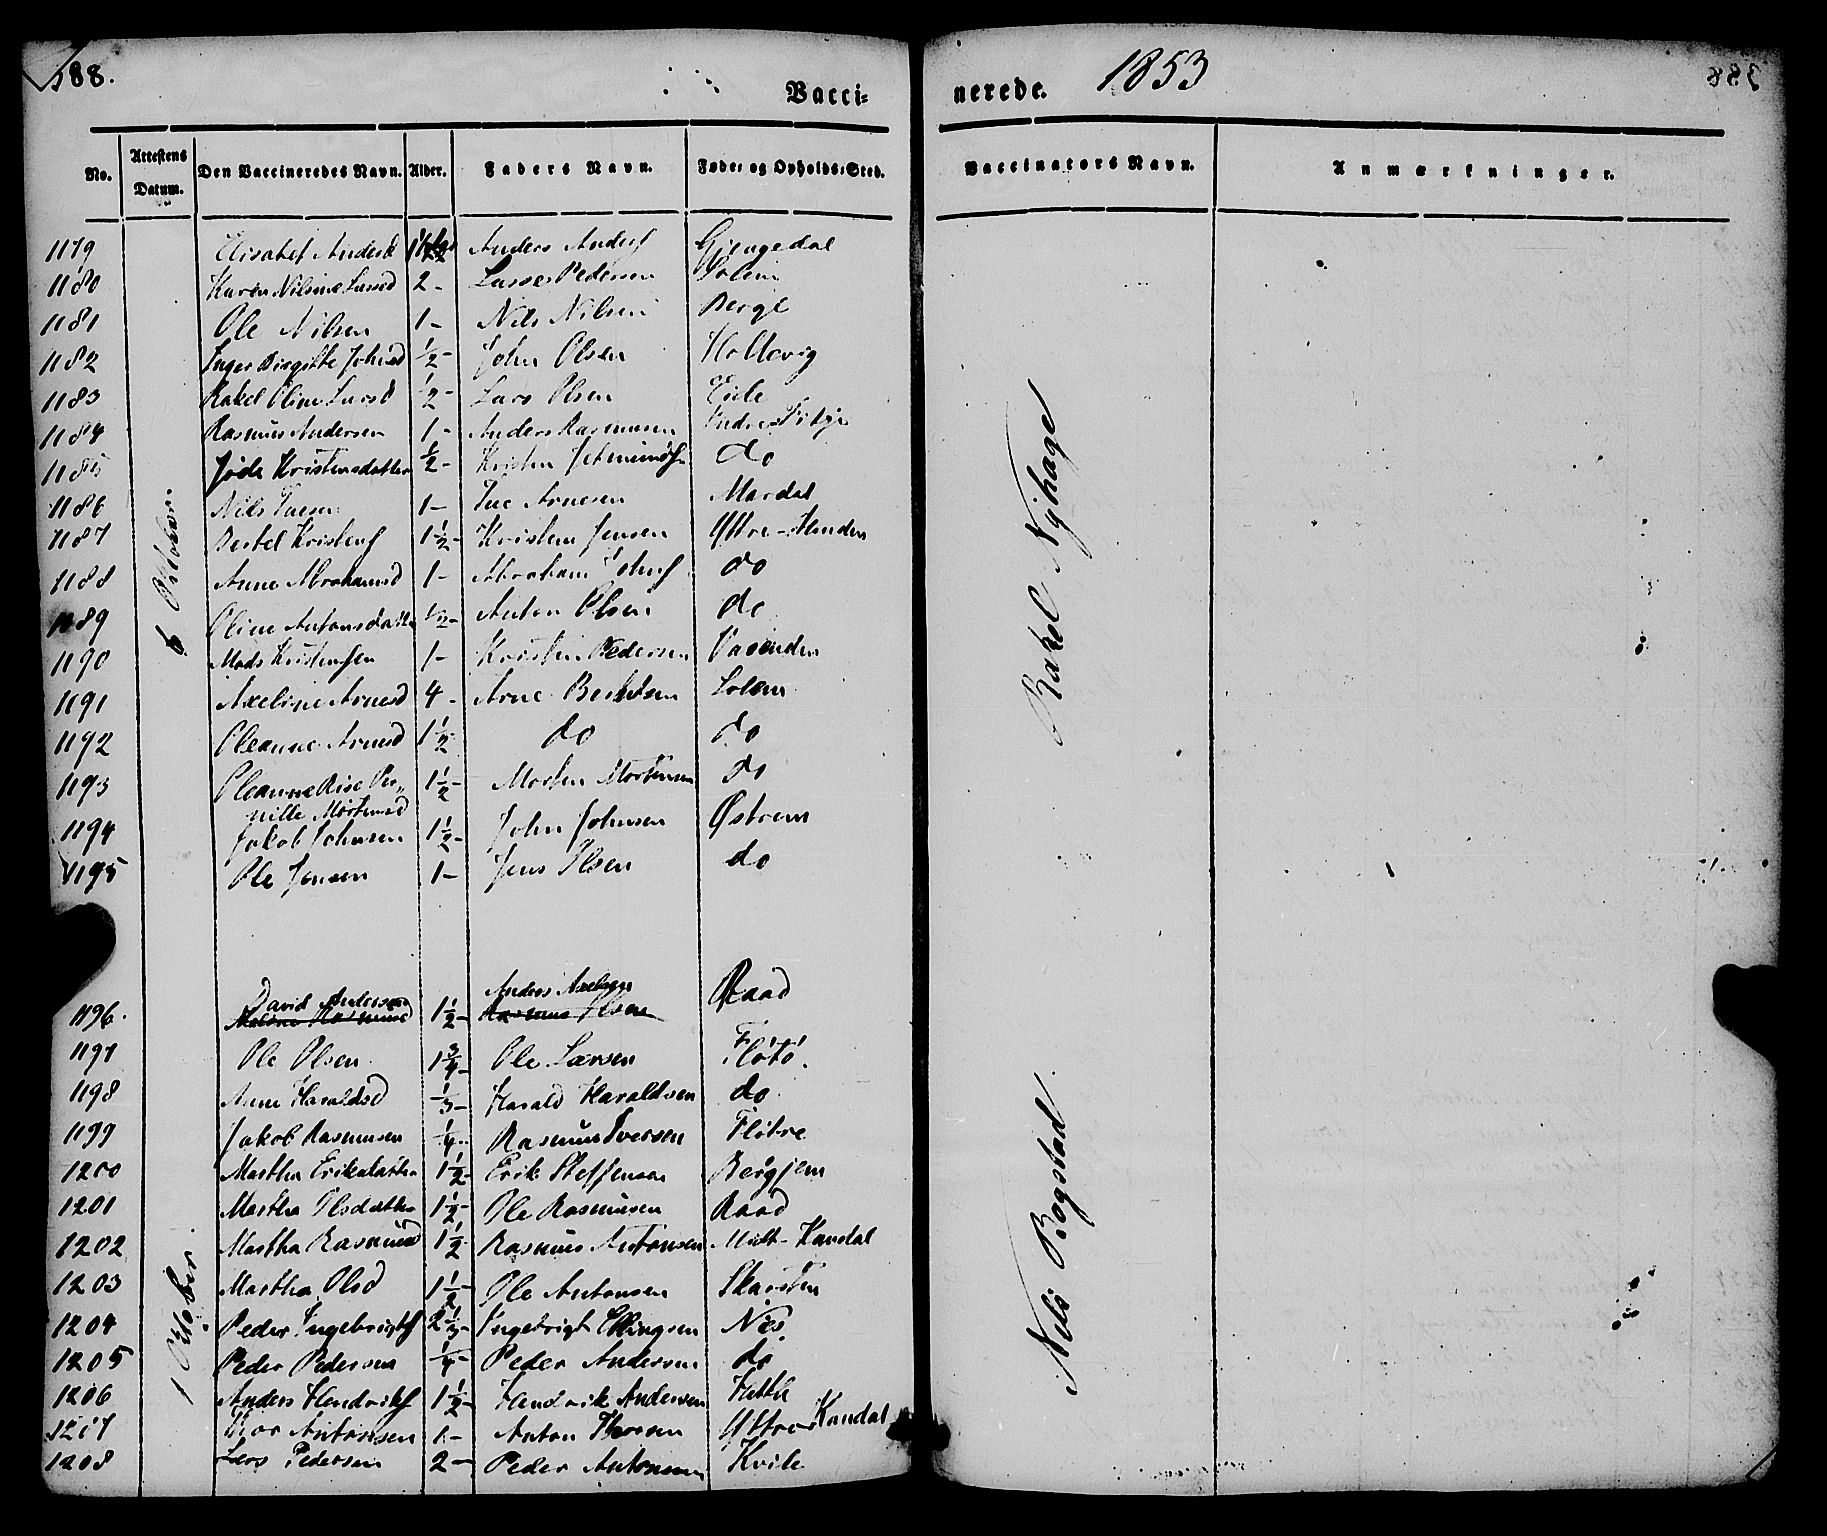 388.
Vacci-
nerede. 1853
No. Attestens Datum. Den Vaccineredes Navn. Alder. Faders Navn. Føde- og Opholds-Sted.
Vaccinators Navn. Anmærkninger.
6 Oktober.
1179 Elisabet Andersd Anders Anders Gjengedal
1180 Karen Nilsine Lassed 2 - Lasse Pedersen Solem
1181 Ole Nilsen 1 - Nils Nilsen Berge
1182 Inger Birgitte Johnsd ½ - John Olsen Hollevig
1183 Rakel Oline Larsd ½ - Lars Olsen Eide
1184 Rasmus Andersen 1 - Anders Rasmusen Indre-Fitje
1185 Kristensdatter ½ - Kristen do
1186 Nils 1 - Arnesen Mardal
1187 Bertel Kristens 1½ - Kristen Jensen Yttre-Henden
1188 Anne Abrahamsd 1 - Abraham do
1189 Oline Antonsdatter ½ - Anton Olsen do
1190 Mads Kristensen 1 - Kristen Pedersen Vasenden
1191 Axeline Arnesd 4 - Arne Bertelsen Solem
1192 Oleanne Arnesd 1½ do do
1193 Oleanne Rise Per-
nille Mortensd 1½ - Morten Mortensen do
1194 Jakob Johnsen 1½ - John Johnsen Østrem
1195 Ole Jensen 1 - Jens Olsen do
Rakel Nyhage
1 Oktober.
David Andersen Anders Axelsen
1196. Malene Rasmusd 1½ - Rasmus Olsen Raad
1197 Ole Olsen 1¾ - Ole Larsen Flötö.
1198 Anne Haraldsd ⅓ - Harald Haraldsen do
1199 Jakob Rasmusen ¼ - Rasmus Iversen Flötre
1200 Martha Eriksdatter 1½ - Erik Steffensen Bergjem
1201 Martha Olsdatter 1½ - Ole Rasmusen Raad
1202 Martha Rasmusd 1½ Rasmus Antonsen Midt-Kandal
1203 Martha Olsd 1½ - Ole Antonsen Skarsten
1204 Peder Ingebrigts 2⅓ - Ingebrigt Ellingsen Nes.
1205 Peder Pedersen ¼ - Peder Andersen do
1206 Anders Hendriks 1½ - Hendrik Andersen Hette
1207 Thor Antonsen 1 - Anton Thorsen Yttre Kandal
1208 Lars Pedersen 2 - Peder Antonsen Kvile
Nils Bogstad.